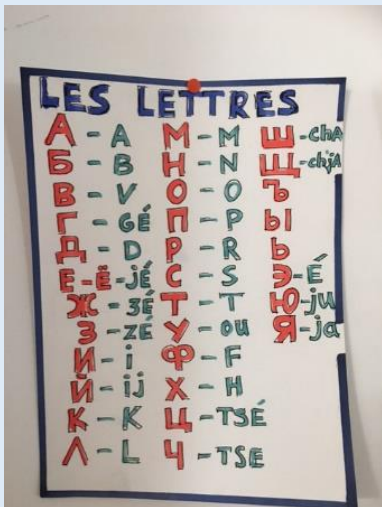 LES LETTRES
А - A
Б - B
В - V
Г - GÉ
Д - D
Е - Ё - jÉ
Ж - ЗÉ
З - ZÉ
И - i
Й - ij
К - K
Л - L
М - M
Н - N
О - O
П - P
Р - R
С - S
Т - T
У - ou
Ф - F
Х - H
Ц - TSÉ
Ч - TSE
Ш - chA
Щ - chjA
Ъ
Ы
Ь
Э - É
Ю - ju
Я - ja